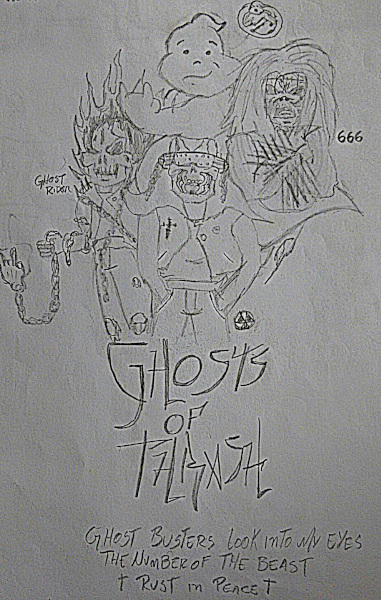 666
GHOST
RIDER
GHOSTS
OF
THRASH
GHOST BUSTERS LOOK INTO MY EYES
THE NUMBER OF THE BEAST
† RUST in PEACE †